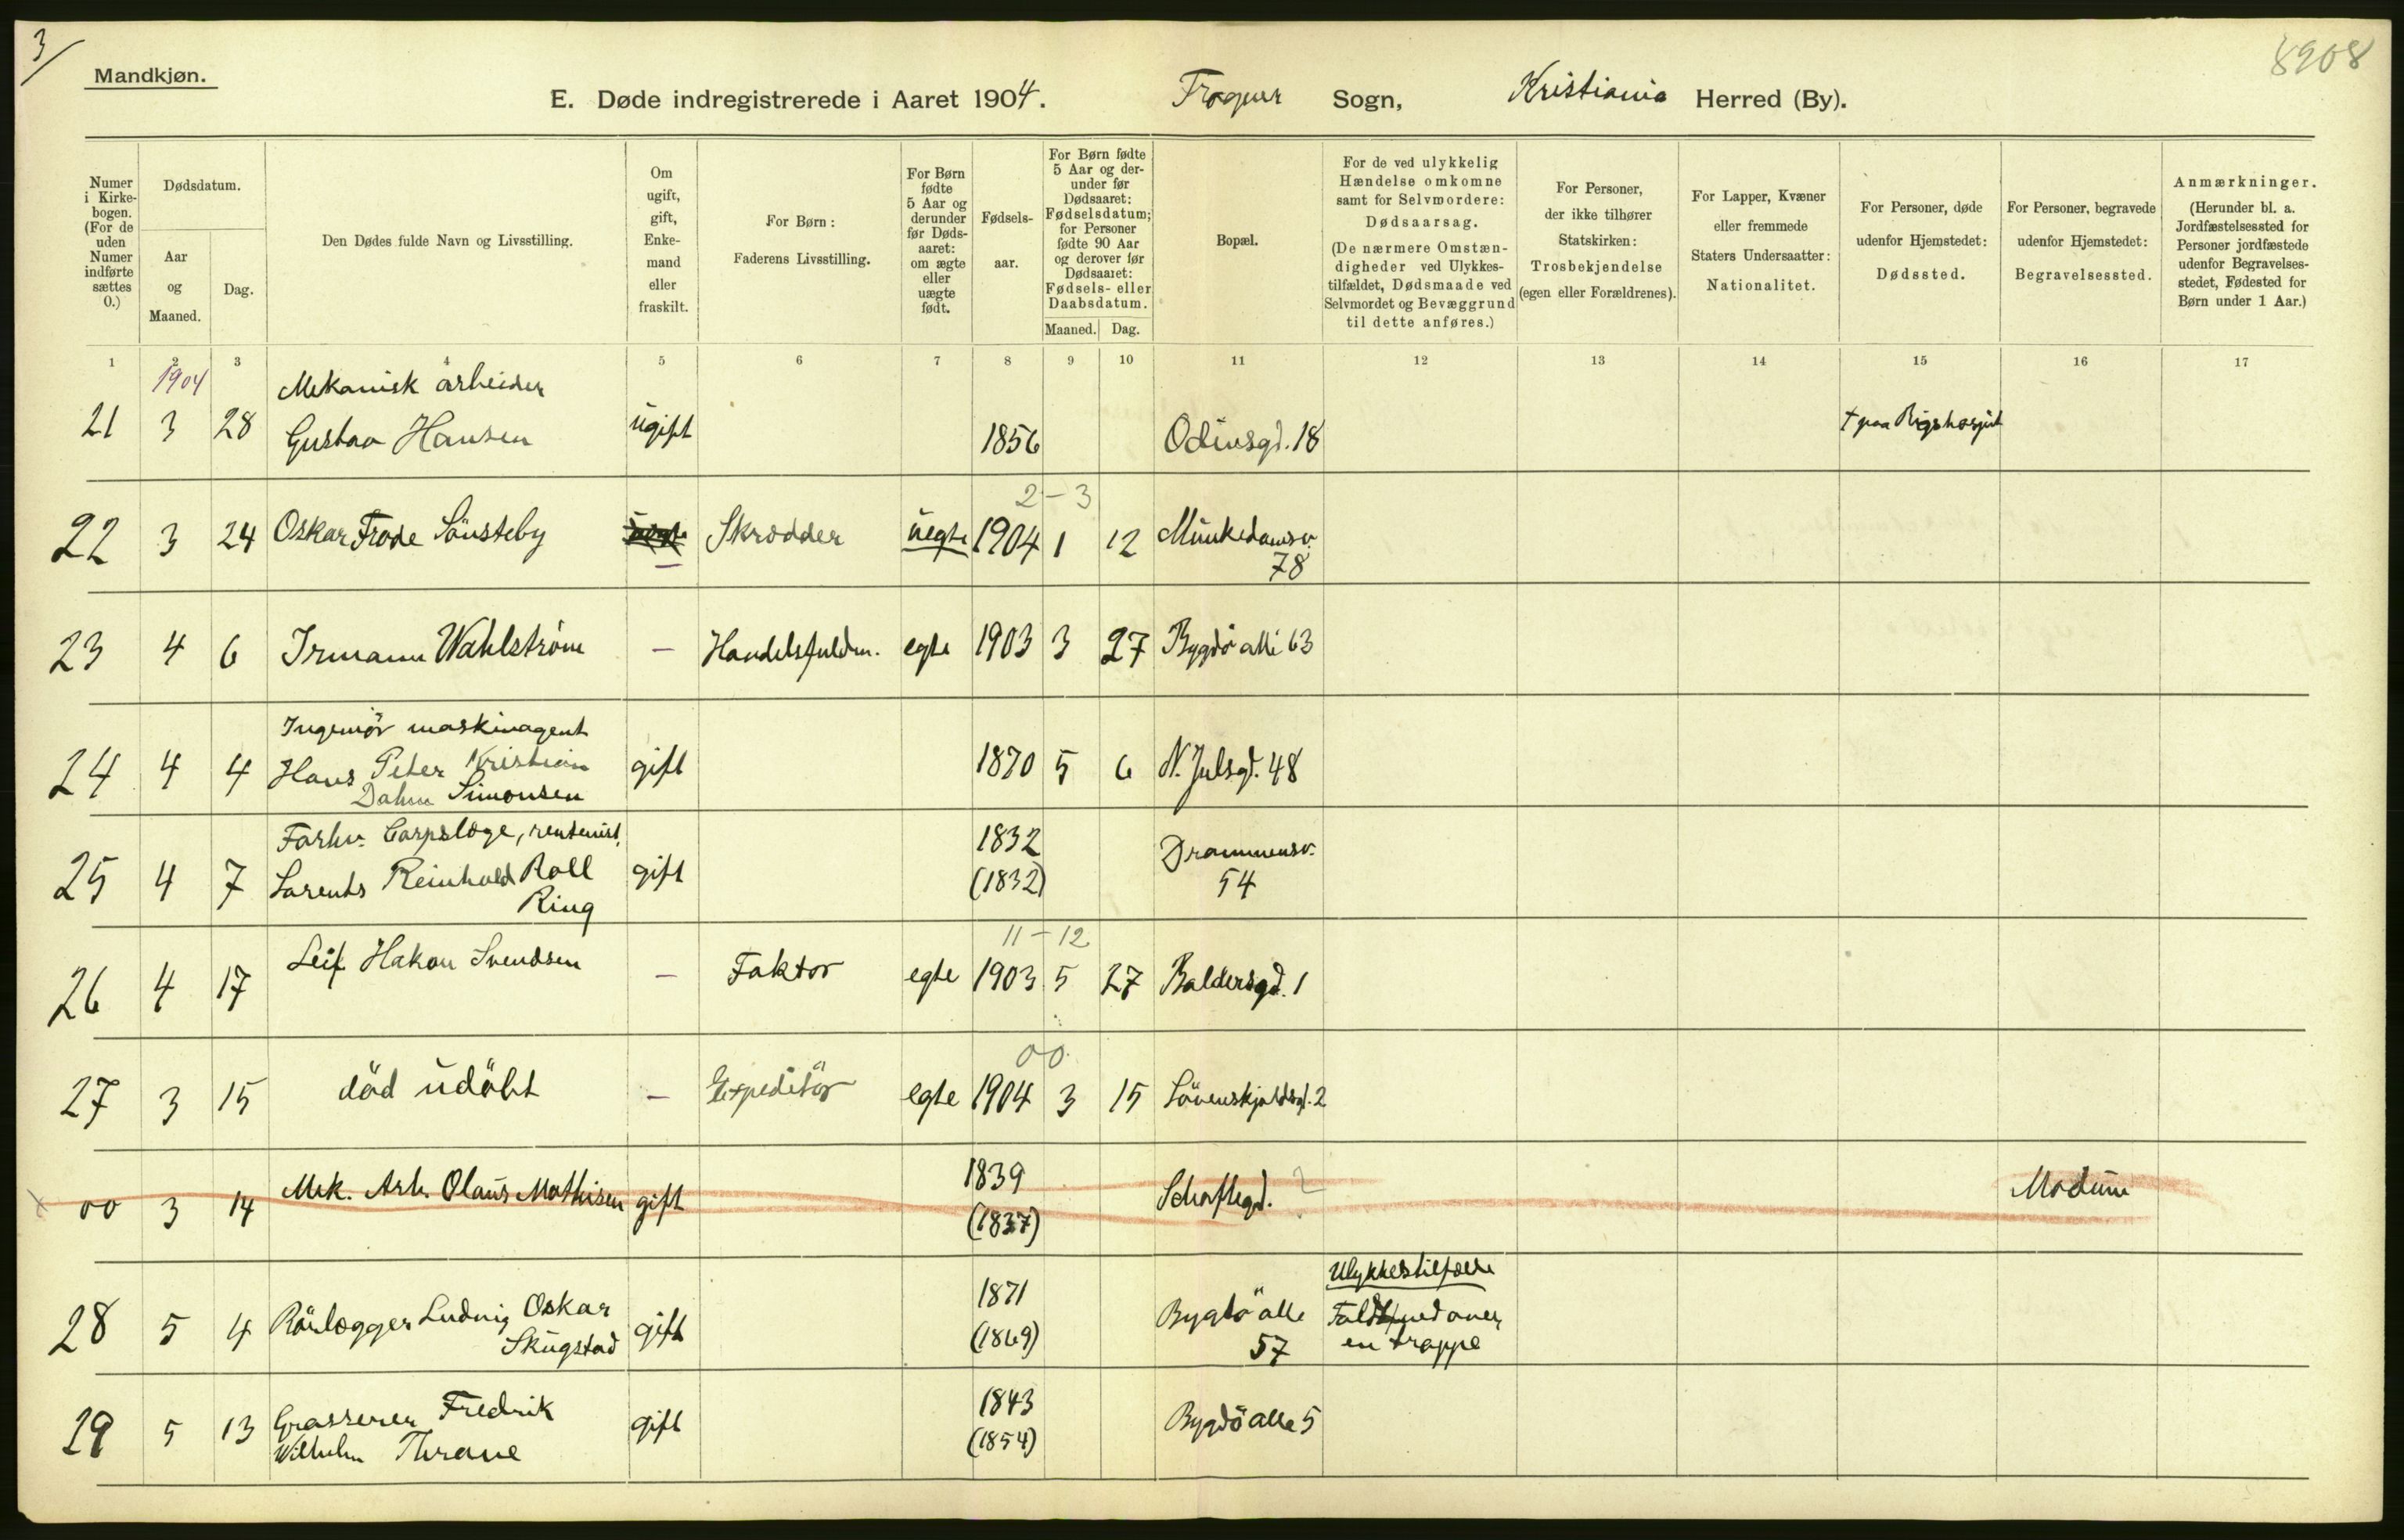 3/
8908
Mandkjøn.
E. Døde indregistrerede i Aaret 1904. Frogner Sogn, Kristiania Herred (By).
Numer i Kirkebogen. (For de uden Numer indførte sættes 0.)
Dødsdatum.
Aar og Maaned.
Dag.
Den Dødes fulde Navn og Livsstilling.
Om ugift, gift, Enkemand eller fraskilt.
For Børn: Faderens Livsstilling.
For Børn fødte 5 Aar og derunder før Dødsaaret: om ægte eller uægte født.
Fødselsaar.
For Børn fødte 5 Aar og derunder før Dødsaaret: Fødselsdatum; for Personer fødte 90 Aar og derover før Dødsaaret: Fødsels- eller Daabsdatum.
Maaned. Dag.
Bopæl.
For de ved ulykkelig Hændelse omkomne samt for Selvmordere: Dødsaarsag. (De nærmere Omstændigheder ved Ulykkestilfældet, Dødsmaade ved Selvmordet og Bevæggrund til dette anføres.)
For Personer, der ikke tilhører Statskirken: Trosbekjendelse (egen eller Forældrenes).
For Lapper, Kvæner eller fremmede Staters Undersaatter: Nationalitet.
For Personer, døde udenfor Hjemstedet: Dødssted.
For Personer, begravede udenfor Hjemstedet: Begravelsessted.
Anmærkninger. (Herunder bl. a. Jordfæstelsessted for Personer jordfæstede udenfor Begravelsesstedet, Fødested for Børn under 1 Aar.)
1 2 3 4 5 6 7 8 9 10 11 12 13 14 15 16 17
1904 Mekanisk arbeider
21 3 28 Gustav Hansen ugift 1856 Odinsgd. 18 † paa Rigshospit
2 - 3
22 3 24 Oskar Frode Sönsteby Skrædder uegte 1904 1 12 Munkedamsv. 78
23 4 6 Irmann Wahlström - Handelsfuldm. egte 1903 3 27 Bygdö alle 63
Ingeniör maskinagent
24 4 4 Hans Peter Kristian gift 1870 5 6 N. Julsgd. 48
Dahm Simonsen
Forhv. Corpslæge, rentenist, 1832
25 4 7 Lorents Reinhold Roll gift (1832) Drammensv. 54
Ring
11 - 12
26 4 17 Leif Hakon Svendsen - Faktor egte 1903 5 27 Baldersgd. 1
00.
27 3 15 död udöbt - Expeditör egte 1904 3 15 Lövenskjoldsgd. 2
1839
00 3 14 Mek. Arb. Olaus Mathisen gift (1837) Schaftegd. 2 Modum
Ulykkestilfælde
28 5 4 Rörlægger Ludvig Oskar gift 1871 Bygdö alle Faldt ned over
Skugstad (1869) 57 en trappe
29 5 13 Grasserer Fredrik gift 1843 Bygdö alle 5
Wilhelm Thrane (1854)